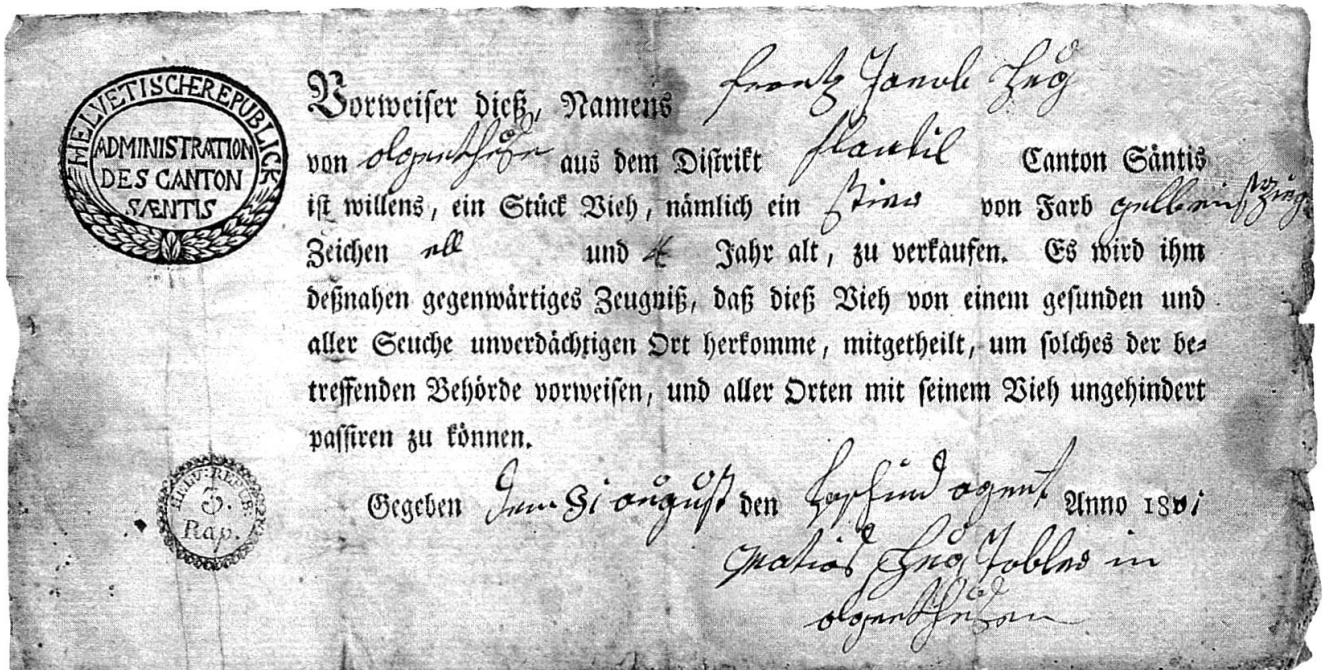 HELVETISCHE REPUBLICK
ADMINISTRATION
DES CANTON
SÆNTIS
Vorweiser dieß, Namens Frantz Jacob Hug
von aus dem Distrikt Flawil Canton Säntis
ist willens, ein Stück Vieh, nämlich ein stier von Farb gelb
Zeichen all und 4 Jahr alt, zu verkaufen. Es wird ihm
deßnahen gegenwärtiges Zeugniß, daß dieß Vieh von einem gesunden und
aller Seuche unverdächtigen Ort herkomme, mitgetheilt, um solches der be⸗
treffenden Behörde vorweisen, und aller Orten mit seinem Vieh ungehindert
passiren zu können.
HELV: REPUB:
3.
Rap.
Gegeben dem 31 august den agent Anno 1801
Hug Tobler in